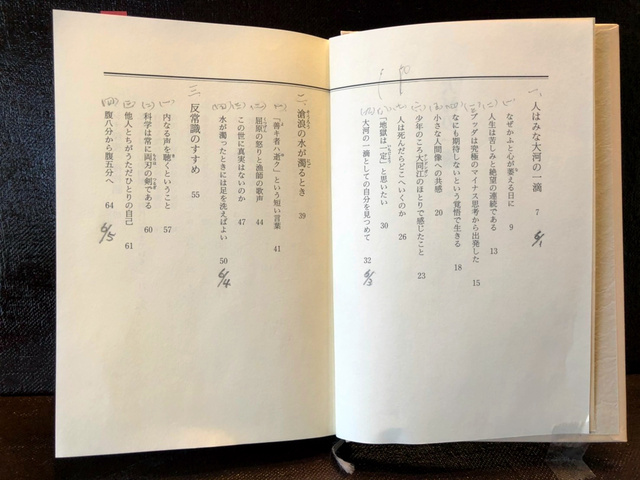 一、人はみな大河の一滴 7 6/1
なぜかふと心が萎える日に 9
人生は苦しみと絶望の連続である 13
ブッダは究極のマイナス思考から出発した 15
なにも期待しないという覚悟で生きる 18
小さな人間像への共感 20
少年のころ大同江のほとりで感じたこと 23
人は死んだらどこへいくのか 26
「地獄は一定」と思いたい 30
大河の一滴としての自分を見つめて 32 6/3
二、滄浪の水が濁るとき 39
「善キ者ハ逝ク」という短い言葉 41
屈原の怒りと漁師の歌声 44
この世に真実はないのか 47
水が濁ったときには足を洗えばよい 50 6/4
三 反常識のすすめ 55
内なる声を聴くということ 57
科学は常に両刃の剣である 60
他人とちがうただひとりの自己 61
腹八分から腹五分へ 64 6/5